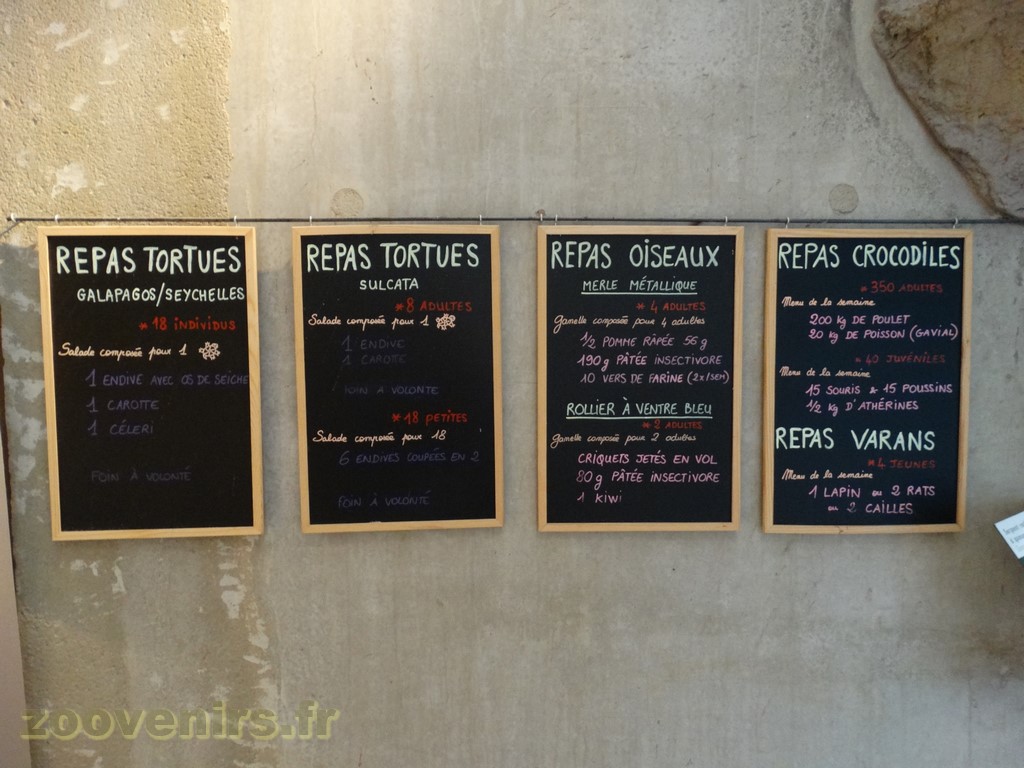 REPAS TORTUES
GALAPAGOS/SEYCHELLES
* 18 INDIVIDUS
Salade composée pour 1
1 ENDIVE AVEC OS DE SEICHE
1 CAROTTE
1 CÉLERI
FOIN À VOLONTÉ
REPAS TORTUES
SULCATA
* 8 ADULTES
Salade composée pour 1
1 ENDIVE
1 CAROTTE
FOIN A VOLONTE
* 18 PETITES
Salade composée pour 18
6 ENDIVES COUPÉES EN 2
FOIN À VOLONTÉ
REPAS OISEAUX
MERLE MÉTALLIQUE
* 4 ADULTES
Gamelle composée pour 4 adultes
1/2 POMME RÂPÉE 56 g
190 g PÂTÉE INSECTIVORE
10 VERS DE FARINE (2x/SEM)
ROLLIER À VENTRE BLEU
* 2 ADULTES
Gamelle composée pour 2 adultes
CRIQUETS JETÉS EN VOL
80 g PÂTÉE INSECTIVORE
1 KIWI
REPAS CROCODILES
* 350 ADULTES
Menu de la semaine
200 Kg DE POULET
20 Kg DE POISSON (GAVIAL)
* 40 JUVÉNILES
Menu de la semaine
15 SOURIS & 15 POUSSINS
1/2 Kg D'ATHÉRINES
REPAS VARANS
* 4 JEUNES
Menu de la semaine
1 LAPIN ou 2 RATS
ou 2 CAILLES
zoovenirs.fr